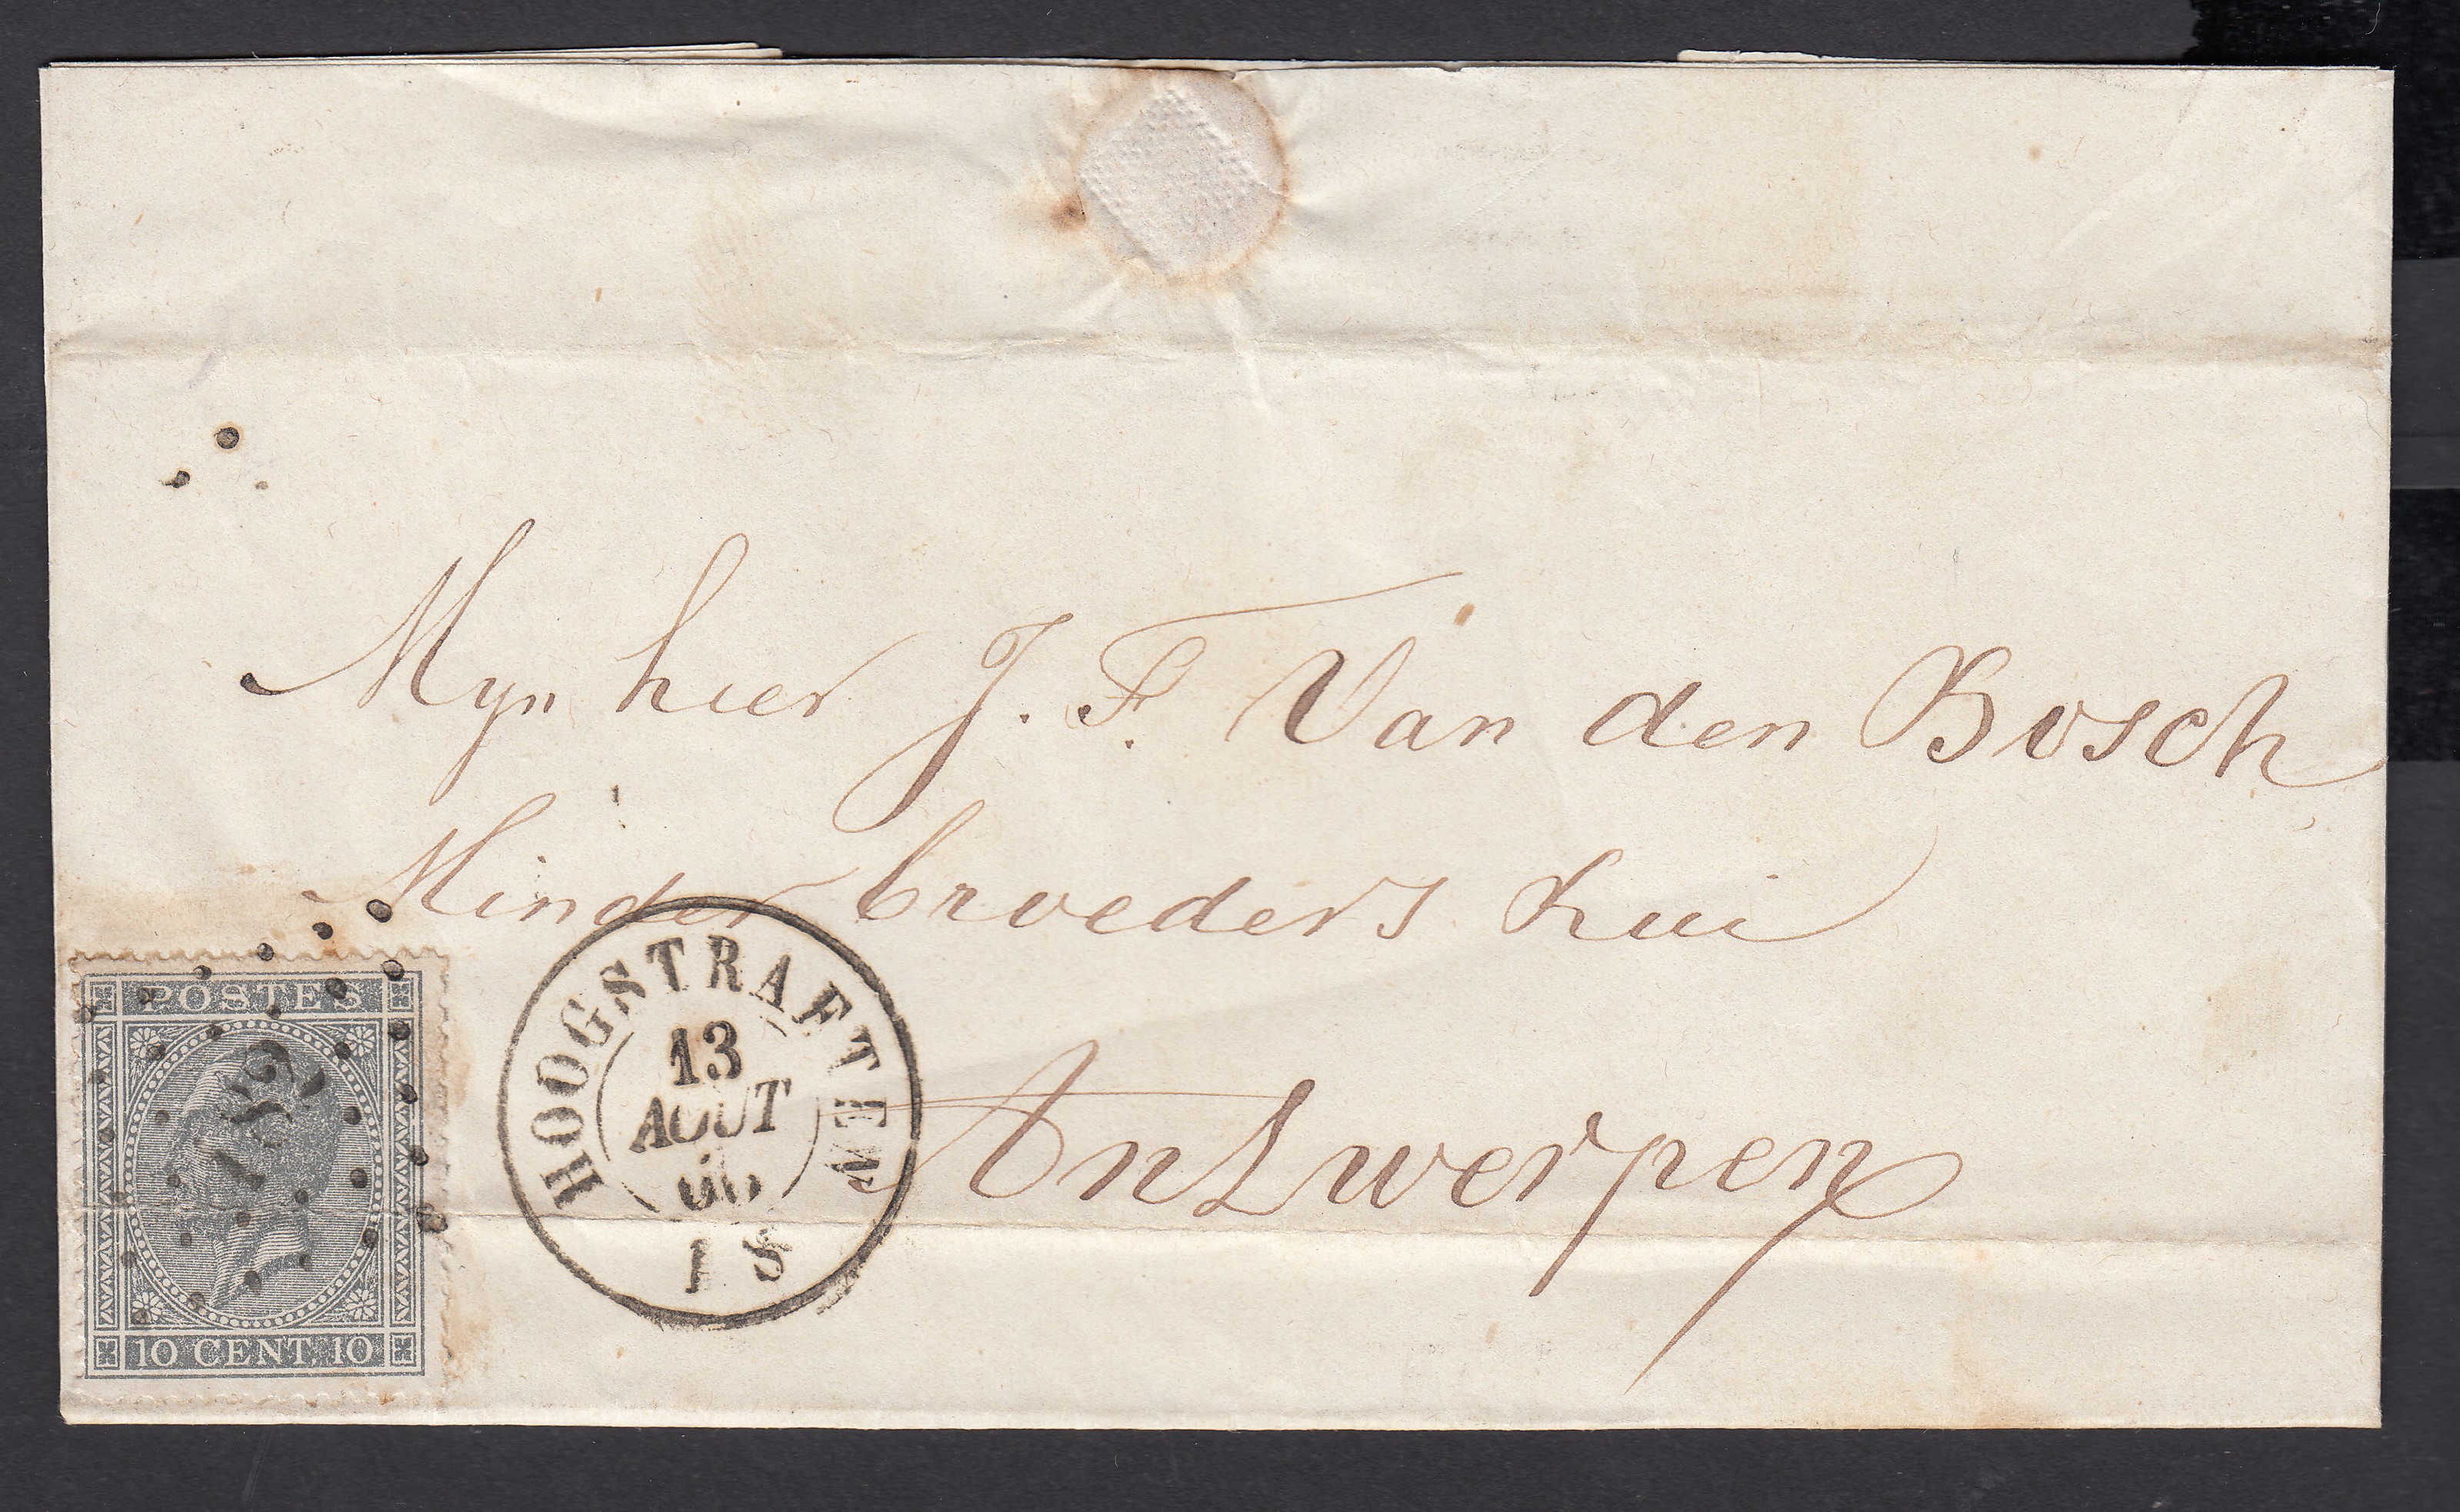 Myn hier J. F. Van den Bosch
Minder broeders Rui
Antwerpen
POSTES
182
10 CENT. 10
HOOGSTRAETEN
13
AOUT
66
1 S